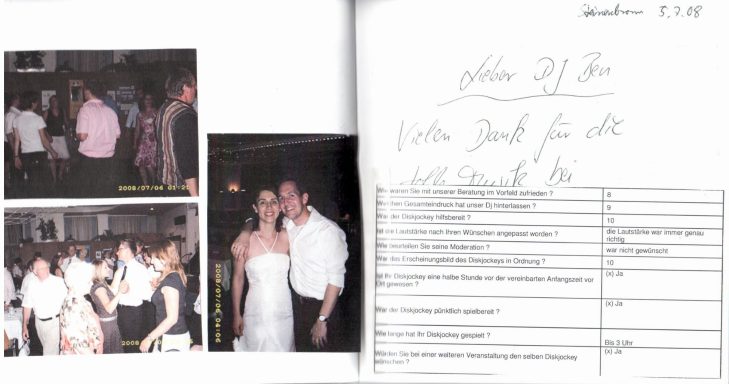 2008/07/06 01:21
2008/07/06
2008/07/06 04:06
Steinenbronn 5.7.08
Lieber DJ Ben
Vielen Dank für die
tolle Musik bei
Wie waren Sie mit unserer Beratung im Vorfeld zufrieden ? 8
Welchen Gesamteindruck hat unser Dj hinterlassen ? 9
War der Diskjockey hilfsbereit ? 10
Ist die Lautstärke nach Ihren Wünschen angepasst worden ? die Lautstärke war immer genau
richtig
Wie beurteilen Sie seine Moderation ? war nicht gewünscht
War das Erscheinungsbild des Diskjockeys in Ordnung ? 10
Ist Ihr Diskjockey eine halbe Stunde vor der vereinbarten Anfangszeit vor (x) Ja
Ort gewesen ?
War der Diskjockey pünktlich spielbereit ? (x) Ja
Wie lange hat Ihr Diskjockey gespielt ? Bis 3 Uhr
Würden Sie bei einer weiteren Veranstaltung den selben Diskjockey (x) Ja
wünschen ?